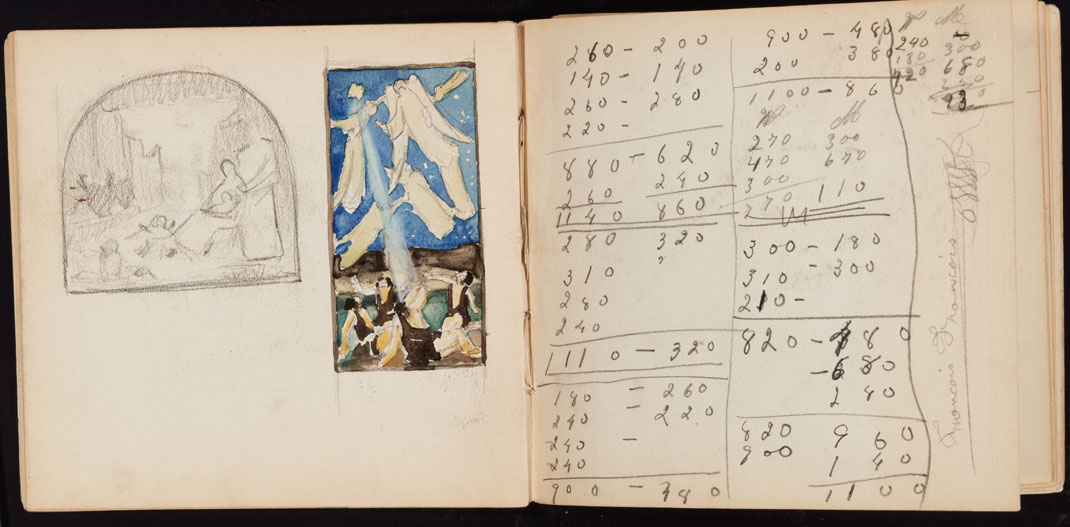 260 - 200
140 - 140
260 - 280
220 -
880 - 620
260 240
1140 860
280 320
?
310
280
240
1110 - 320
180 - 260
240 - 220
240 -
240
900 - 480
900 - 480
200 380
1100 - 860
270 300
470 670
300
270 110
300 - 180
310 - 300
210 -
820 - 480
- 680
280
820 960
900 140
1100
240 300
180
420 680
Francois Francois